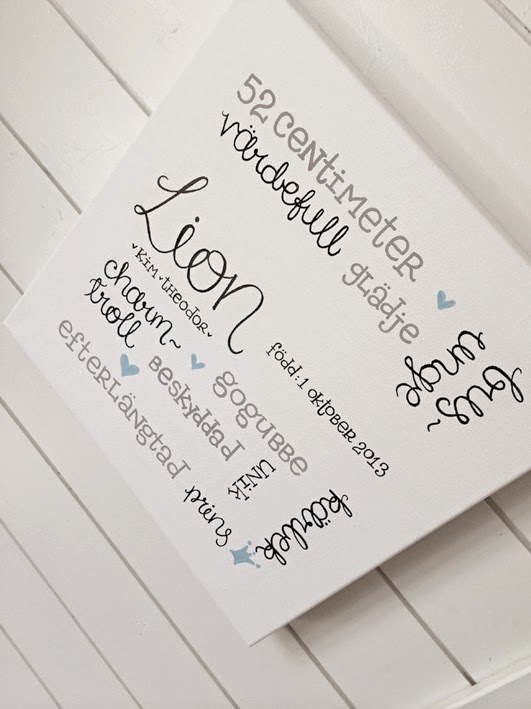 52 CENTIMETER
värdefull
GLÄDJE
bus-
unge
Lion
KIM THEODOR
född: 1 oktober 2013
charm-
troll
GOGUBBE
BESKYDDAD
UNIK
kärlek
EFTERLÄNGTAD
prins